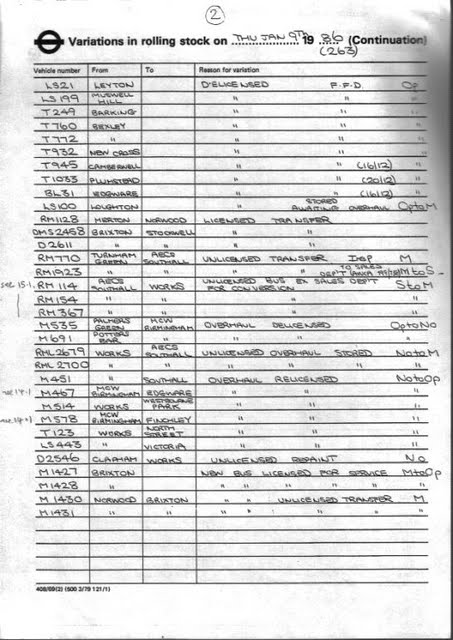 2
Variations in rolling stock on THU JAN 9TH 19 86 (Continuation)
(263)
Vehicle number From To Reason for variation
LS21 LEYTON DELICENSED F.F.D Op
LS199 MUSWELL HILL " " "
T249 BARKING " " "
T760 BEXLEY " " "
T772 " " " "
T932 NEW CROSS " " "
T945 CAMBERWELL " " (16/12) "
T1033 PLUMSTEAD " " (20/12) "
BL31 EDGWARE " " (16/12) "
LS100 LOUGHTON " STORED AWAITING OVERHAUL Op to M
RM1128 MERTON NORWOOD LICENSED TRANSFER
DMS2458 BRIXTON STOCKWELL " "
D2611 " " " "
RM770 TURNHAM GREEN AECS SOUTHALL UNLICENSED TRANSFER Insp M
RM1923 " " " " TO SALES DEP'T M to S
see 15.1. RM114 AECS SOUTHALL WORKS UNLICENSED BUS EX SALES DEP'T FOR CONVERSION S to M
RM154 " " " "
RM367 " " " "
M535 PALMERS GREEN MCW BIRMINGHAM OVERHAUL DELICENSED Op to No
M691 POTTERS BAR " " " "
RML2679 WORKS AECS SOUTHALL UNLICENSED OVERHAUL STORED No to M
RML2700 " " " " "
M451 " SOUTHALL OVERHAUL RELICENSED No to Op
M467 MCW BIRMINGHAM EDGWARE " " "
M514 WORKS WESTBOURNE PARK " " "
M578 MCW BIRMINGHAM FINCHLEY " " "
T123 WORKS NORTH STREET " " "
LS443 " VICTORIA " " "
D2546 CLAPHAM WORKS UNLICENSED REPAINT No
M1427 BRIXTON NEW BUS LICENSED FOR SERVICE M to Op
M1428 " " " " " " "
M1430 NORWOOD BRIXTON " " UNLICENSED TRANSFER M
M1431 " " " " " " "
409/69(2) (500 3/79 121/1)